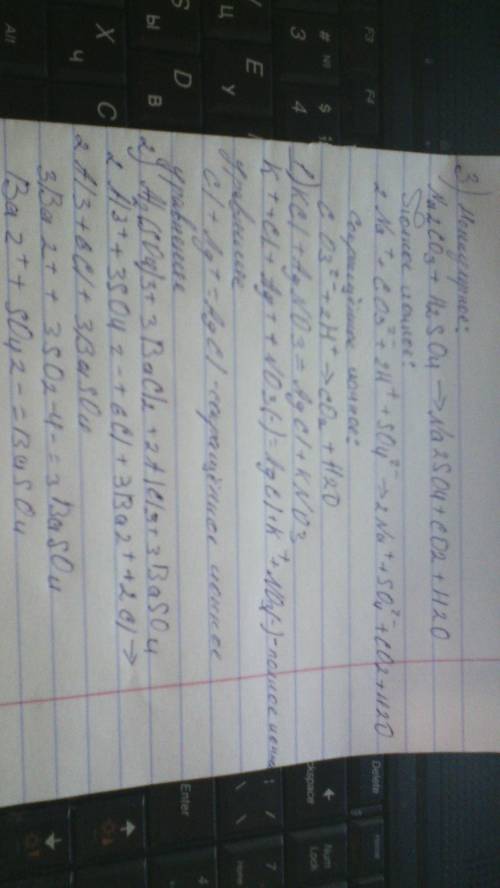 3) Молекулярное:
Na2CO3 + H2SO4 → Na2SO4 + CO2 + H2O
Полное ионное:
2Na⁺ + CO3²⁻ + 2H⁺ + SO4²⁻ → 2Na⁺ + SO4²⁻ + CO2 + H2O
сокращённое ионное:
CO3²⁻ + 2H⁺ → CO2 + H2O
1) KCl + AgNO3 = AgCl + KNO3
K⁺ + Cl + Ag⁺ + NO3(-) = AgCl + K⁺ + NO3(-) - полное ионное
уравнение
Cl + Ag⁺ = AgCl - сокращённое ионное
уравнение
2) Al2(SO4)3 + 3BaCl2 + 2AlCl3 + 3BaSO4
2Al3⁺ + 3SO4 2- + 6Cl + 3Ba2⁺ + 2Cl →
2Al3 + 6Cl + 3BaSO4
3Ba2⁺ + 3SO2-4 = 3BaSO4
Ba2⁺ + SO42- = BaSO4
F3
F4
#
№
3
$
4
Ц
E
У
S
Ы
D
В
X
Ч
C
Alt
Delete
Home
ckspace
Num
Lock
7
Home
Enter
4